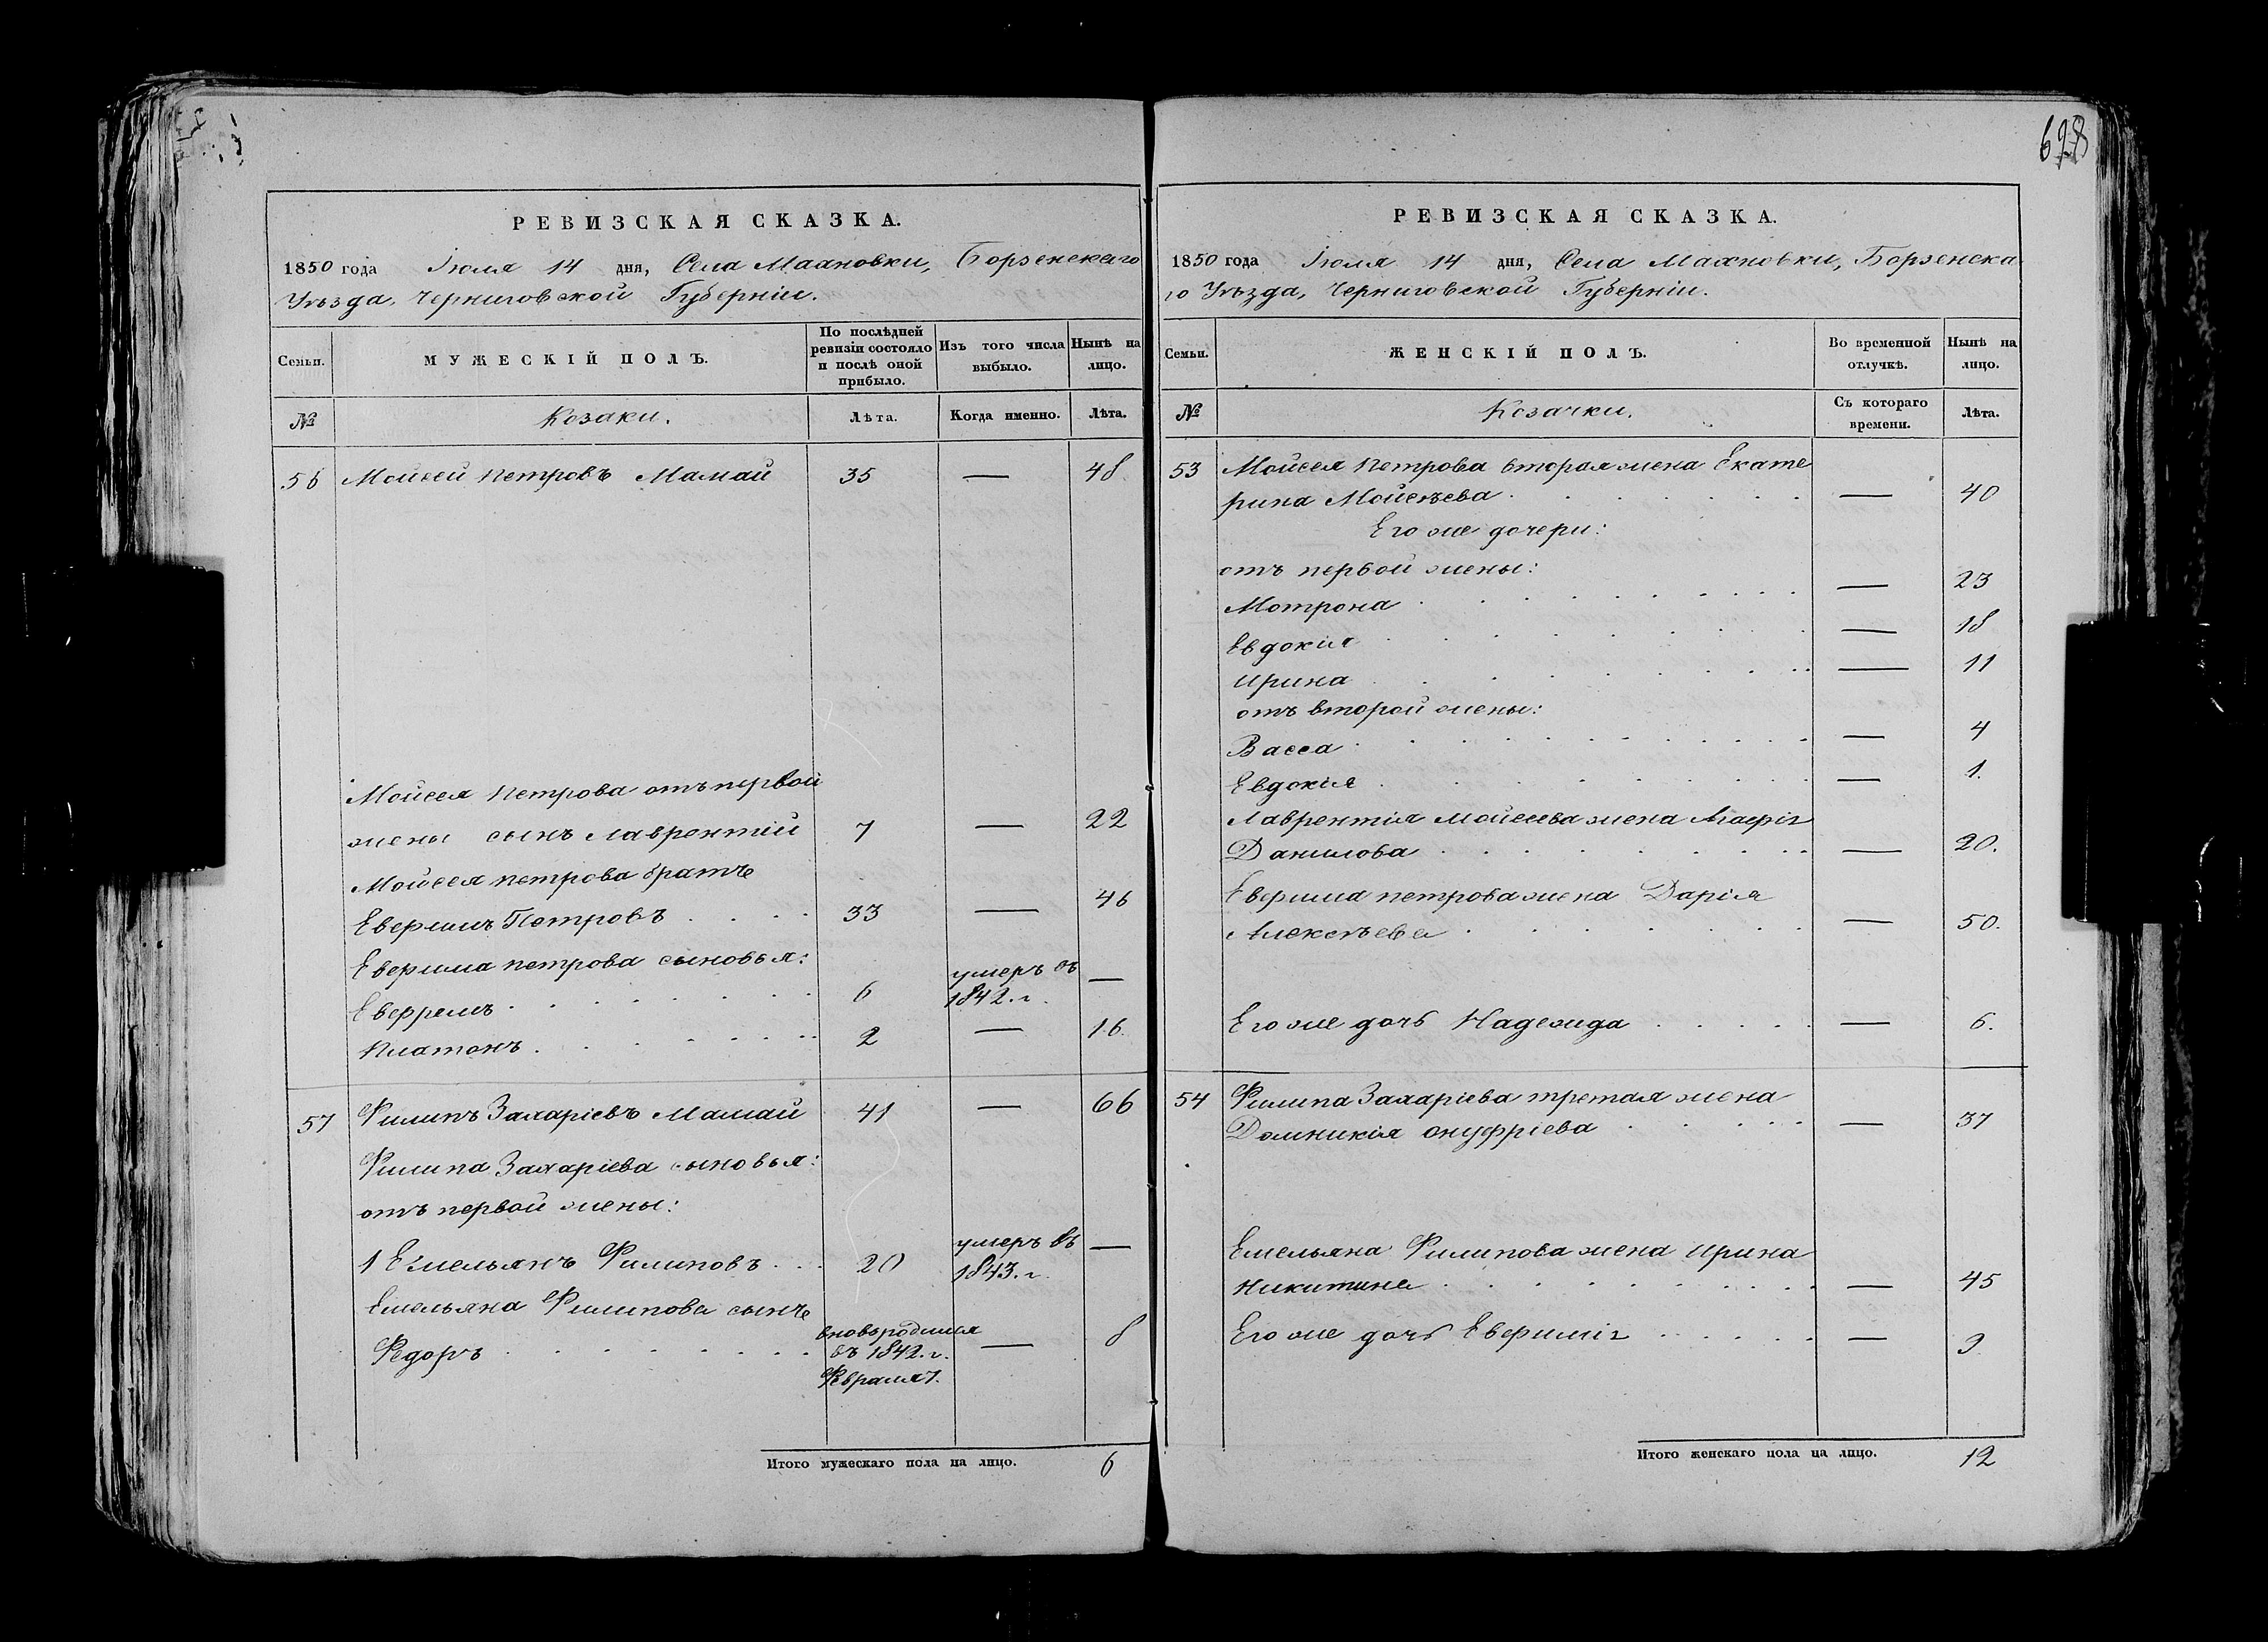 698
РЕВИЗСКАЯ СКАЗКА.
1850 года Іюля 14 дня, Села Махновки, Борзенскаго
Уѣзда, Черниговской Губерніи.
Семьи.
МУЖЕСКІЙ ПОЛЪ.
По послѣдней ревизіи состояло и послѣ оной прибыло.
Изъ того числа выбыло.
Нынѣ на лицо.
№
Козаки.
Лѣта.
Когда именно.
Лѣта.
56 Мойсей Петровъ Мамай 35 — 48
Мойсея Петрова отъ первой
жены сынъ Лаврентій 7 — 22
Мойсея Петрова братъ
Евфимъ Петровъ 33 — 46
Евфима Петрова сыновья:
Евфремъ 6 умеръ въ 1842. г. —
Платонъ 2 — 16
57 Филипъ Захаріевъ Мамай 41 — 66
Филипа Захаріева сыновья:
отъ первой жены:
1 Емельянъ Филиповъ 20 умеръ въ 1843. г. —
Емельяна Филипова сынъ
Федоръ вновьродился въ 1842. г. Февраля 7. — 8
Итого мужескаго пола на лицо. 6
РЕВИЗСКАЯ СКАЗКА.
1850 года Іюля 14 дня, Села Махновки, Борзенска
го Уѣзда, Черниговской Губерніи.
Семьи.
ЖЕНСКІЙ ПОЛЪ.
Во временной отлучкѣ.
Нынѣ на лицо.
№
Козачки.
Съ котораго времени.
Лѣта.
53 Мойсея Петрова вторая жена Екате
рина Мойсѣева — 40
Его же дочери:
отъ первой жены:
Мотрона — 23
Евдокія — 18
Ирина — 11
отъ второй жены:
Васса — 4
Евдокія — 1.
Лаврентія Мойсеева жена Агафія
Данилова — 20.
Евфима Петрова жена Дарія
Алексѣева — 50.
Его же дочь Надежда — 6.
54 Филипа Захаріева третая жена
Домникія Онуфріева — 37
Емельяна Филипова жена Ирина
Никитина — 45
Его же дочь Евфимія — 9
Итого женскаго пола на лицо. 12